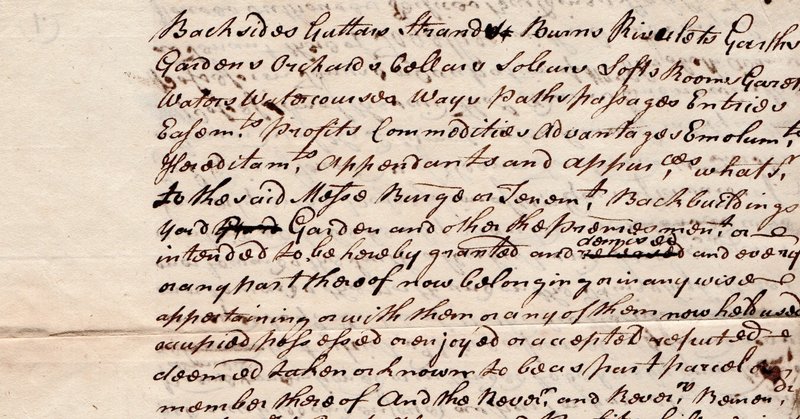 Backsides Guttars Strands Burns Rivulets Garths
Gardens Orchards Cellars Solears Lofts Rooms Garet
Waters Watercourses Ways Paths Passages Entries
Easemts. Profits Commodities Advantages Emolumts.
Hereditamts. Appendants and appurces. whatsr.
to the said Messe Burge or Tenemt. Backbuildings
yard Garden and other the premes ment. or
intended to be hereby granted and demised and every
or any part thereof now belonging or in any wise
appertaining or with them or any of them now held used
occupied possessed or enjoyed or accepted reputed
deemed taken or known to be as part parcel or
member thereof And the Revern. and Reverns. Remr.